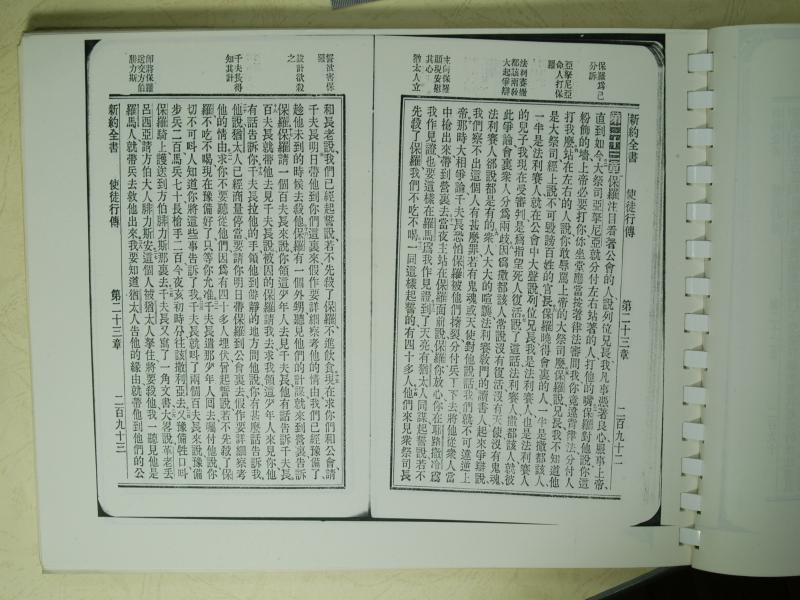 新約全書 使徒行傳 第二十三章 二百九十二
保羅爲己分訴
亞拏尼亞命人打保羅
法利賽撒都該兩敎大起爭辯
主向保羅顯現安慰其心
猶太人立
第二十三章保羅注目看著公會的人說列位兄長我凡事憑著良心服事上帝、
直到如今大祭司亞拏尼亞就分付左右站著的人打他的嘴保羅對他說你這
粉飾的墻上帝必要打你你坐堂應當按著律法審問我你竟違背律法分付人
打我麼站在左右的人說你敢辱罵上帝的大祭司麼保羅說兄長我不知道他
是大祭司經上說不可毀謗百姓的官長保羅曉得會裏的人一半是撒都該人、
一半是法利賽人就在公會中大聲說列位兄長我是法利賽人也是法利賽人
的兒子我現在受審判是爲指望死人復活說了這話法利賽人撒都該人就彼
此爭論會裏衆人分爲兩歧因爲撒都該人常說沒有復活沒有天使沒有鬼魂、
法利賽人卻說都是有的衆人大大的喧讓法利賽敎門的讀書人起來爭辯說
我們察不出這個人有甚麼罪若有鬼魂或天使對他說話我們就不可違逆上
帝那時大相爭論千夫長恐怕保羅被他們撦裂分付兵丁下去將他從衆人當
中搶出來帶到營裏去當夜主站在保羅面前說保羅你放心你在耶路撒冷爲
我作見證也要這樣在羅馬爲我作見證到了天亮有猶太人同謀起誓說若不
先殺了保羅我們不吃不喝一同這樣起誓的有四十多人他們來見衆祭司長
誓欲害保羅
設計欲殺之
千夫長得知其計
卽將保羅送交方伯腓力斯
和長老說我們已經起誓說若不先殺了保羅不進飮食現在求你們和公會請
千夫長明日帶他到你們這裏來假作要詳細察考他的情由我們已經豫備了
趁他未到的時候去殺他保羅有一個外甥聽見他們的計謀就來到營裏告訴
保羅保羅請一個百夫長來說你領這少年人去見千夫長他有話告訴千夫長
百夫長就帶他去見千夫長說被囚的保羅請我去求我領這少年人來見你他
有話告訴你千夫長拉他的手領他到僻靜的地方問他說你有甚麼話告訴我
他說猶太人已經商量停當要請你明日帶保羅到公會裏去假作要詳細察考
他的情由求你不要聽從他們因爲有四十多人埋伏曾起誓說若不先殺了保
羅不吃不喝現在豫備好了只等你允准千夫長遣那少年人囘去囑付他說你
切不可叫人知道你將這些事告訴了我千夫長就叫了兩個百夫長來說豫備
步兵二百馬兵七十長槍手二百今夜亥初時分往該撒利亞去又豫備牲口叫
保羅騎上護送到方伯腓力斯那裏去千夫長又寫了一角文書大畧說革老丟
呂西亞請方伯大人腓力斯安這個人被猶太人拏住將要殺他我一聽見他是
羅馬人就帶兵去救他出來我要知道猶太人告他的緣由就帶他到他們的公
新約全書 使徒行傳 第二十三章 二百九十三